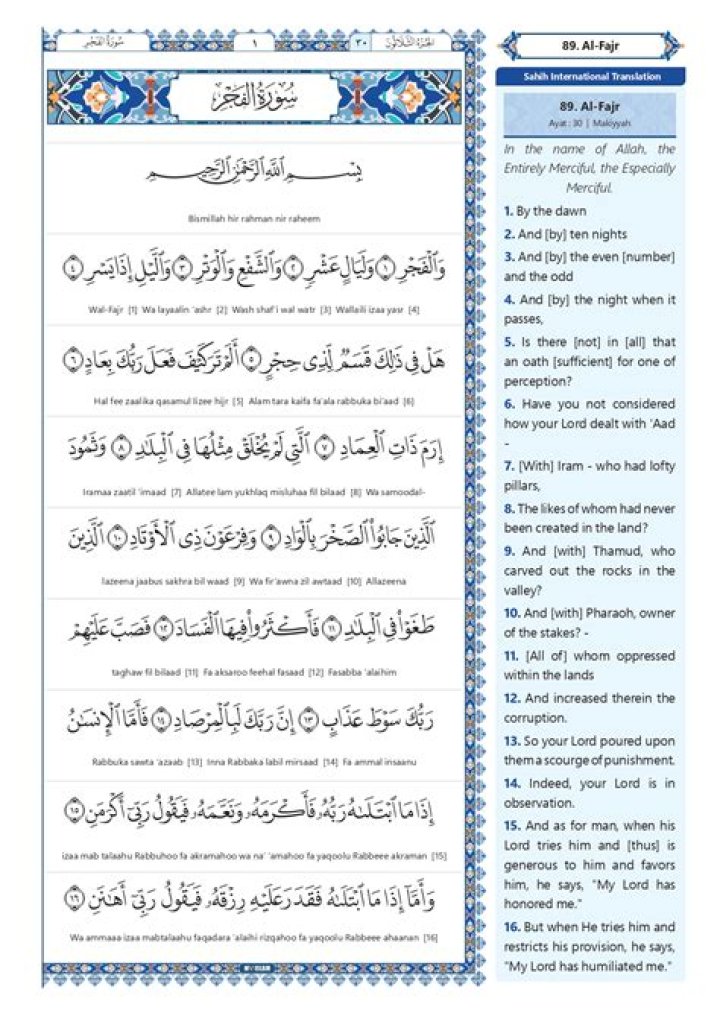 سُورَةُ الفَجْرِ
١
٣٠
الجُزْءُ الثَّلَاثُونَ
سُورَةُ الفَجْرِ
بِسْمِ اللَّهِ الرَّحْمَٰنِ الرَّحِيمِ
Bismillah hir rahman nir raheem
وَالْفَجْرِ ١ وَلَيَالٍ عَشْرٍ ٢ وَالشَّفْعِ وَالْوَتْرِ ٣ وَاللَّيْلِ إِذَا يَسْرِ ٤
Wal-Fajr [1] Wa layaalin 'ashr [2] Wash shaf'i wal watr [3] Wallaili izaa yasr [4]
هَلْ فِي ذَٰلِكَ قَسَمٌ لِّذِي حِجْرٍ ٥ أَلَمْ تَرَ كَيْفَ فَعَلَ رَبُّكَ بِعَادٍ ٦
Hal fee zaalika qasamul lizee hijr [5] Alam tara kaifa fa'ala rabbuka bi'aad [6]
إِرَمَ ذَاتِ الْعِمَادِ ٧ الَّتِي لَمْ يُخْلَقْ مِثْلُهَا فِي الْبِلَٰدِ ٨ وَثَمُودَ
Iramaa zaatil 'imaad [7] Allatee lam yukhlaq misluhaa fil bilaad [8] Wa samoodal-
الَّذِينَ جَابُوا۟ الصَّخْرَ بِالْوَادِ ٩ وَفِرْعَوْنَ ذِي الْأَوْتَادِ ١٠ الَّذِينَ
lazeena jaabus sakhra bil waad [9] Wa fir'awna zil awtaad [10] Allazeena
طَغَوْا۟ فِي الْبِلَٰدِ ١١ فَأَكْثَرُوا۟ فِيهَا الْفَسَادَ ١٢ فَصَبَّ عَلَيْهِمْ
taghaw fil bilaad [11] Fa aksaroo feehal fasaad [12] Fasabba 'alaihim
رَبُّكَ سَوْطَ عَذَابٍ ١٣ إِنَّ رَبَّكَ لَبِالْمِرْصَادِ ١٤ فَأَمَّا الْإِنسَٰنُ
Rabbuka sawta 'azaab [13] Inna Rabbaka labil mirsaad [14] Fa ammal insaanu
إِذَا مَا ابْتَلَىٰهُ رَبُّهُۥ فَأَكْرَمَهُۥ وَنَعَّمَهُۥ فَيَقُولُ رَبِّيٓ أَكْرَمَنِ ١٥
izaa mab talaahu Rabbuhoo fa akramahoo wa na' 'amahoo fa yaqoolu Rabbeee akraman [15]
وَأَمَّآ إِذَا مَا ابْتَلَىٰهُ فَقَدَرَ عَلَيْهِ رِزْقَهُۥ فَيَقُولُ رَبِّيٓ أَهَٰنَنِ ١٦
Wa ammaaa izaa mabtalaahu faqadara 'alaihi rizqahoo fa yaqoolu Rabbeee ahaanan [16]
89. Al-Fajr
Sahih International Translation
89. Al-Fajr
Ayat : 30 | Makiyyah
In the name of Allah, the
Entirely Merciful, the Especially
Merciful.
1. By the dawn
2. And [by] ten nights
3. And [by] the even [number]
and the odd
4. And [by] the night when it
passes,
5. Is there [not] in [all] that
an oath [sufficient] for one of
perception?
6. Have you not considered
how your Lord dealt with 'Aad
-
7. [With] Iram - who had lofty
pillars,
8. The likes of whom had never
been created in the land?
9. And [with] Thamud, who
carved out the rocks in the
valley?
10. And [with] Pharaoh, owner
of the stakes? -
11. [All of] whom oppressed
within the lands
12. And increased therein the
corruption.
13. So your Lord poured upon
them a scourge of punishment.
14. Indeed, your Lord is in
observation.
15. And as for man, when his
Lord tries him and [thus] is
generous to him and favors
him, he says, "My Lord has
honored me."
16. But when He tries him and
restricts his provision, he says,
"My Lord has humiliated me."